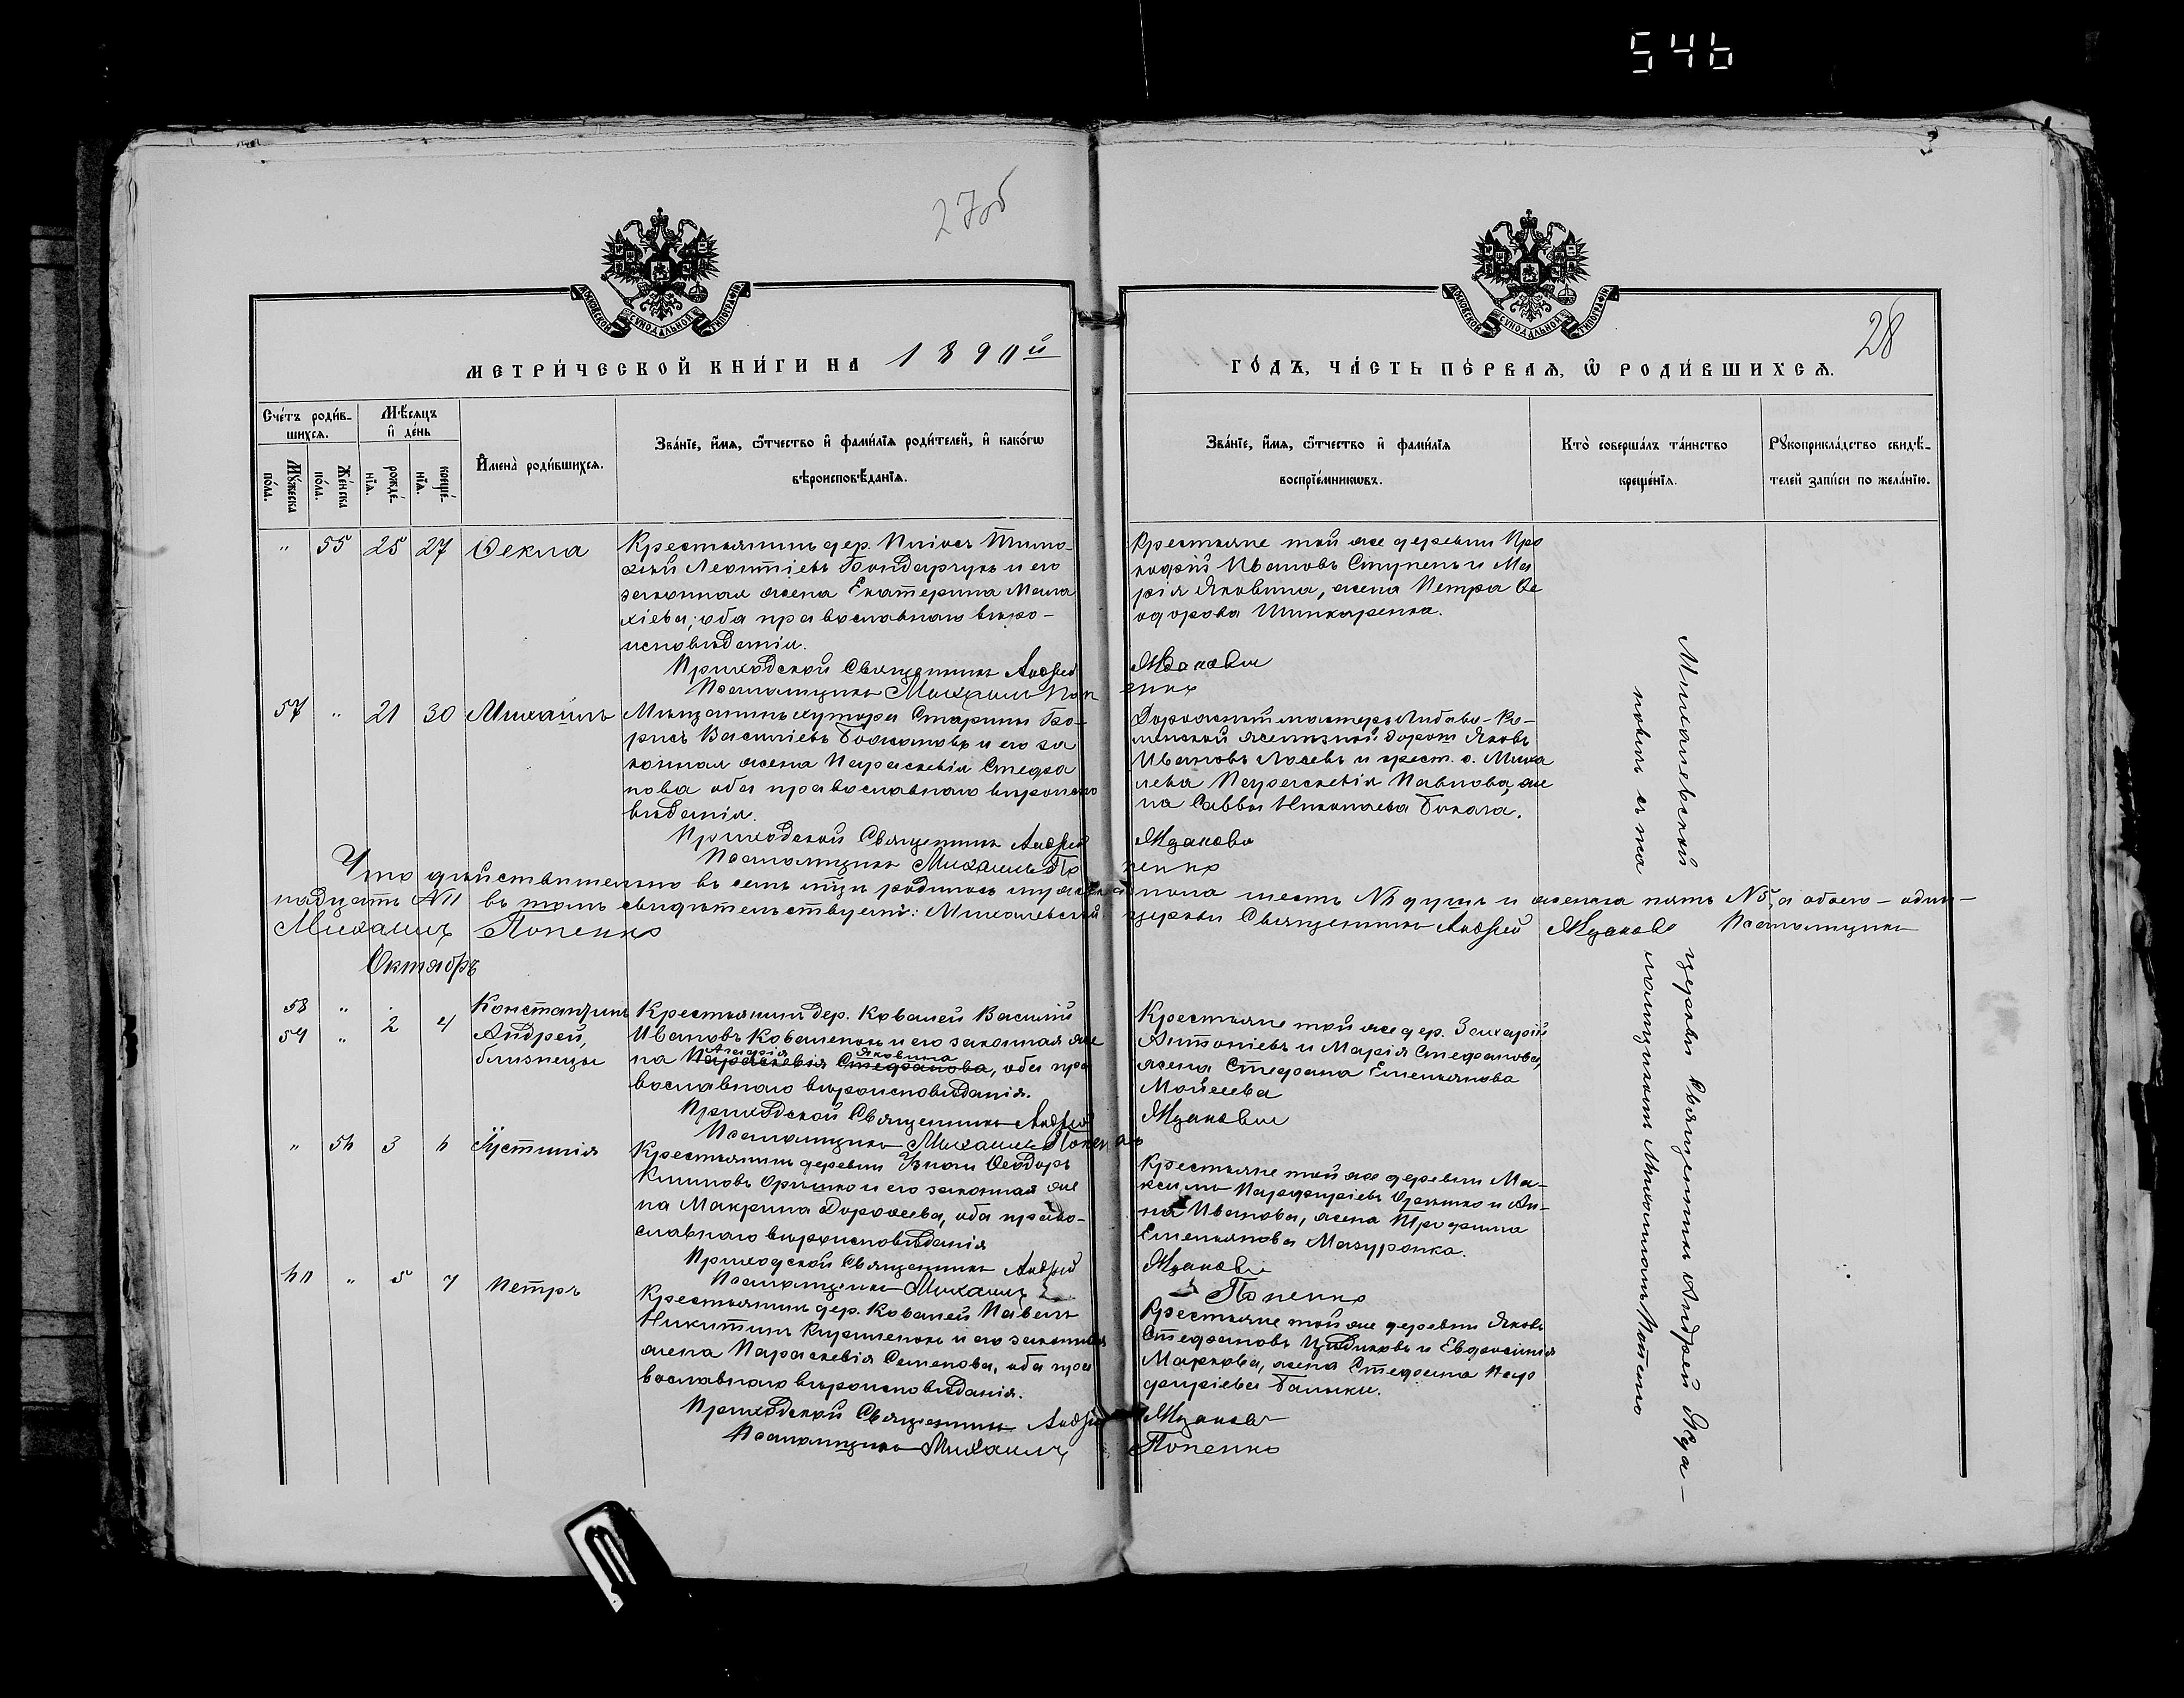 546
27об
28
МОСКОВСКОЙ СѴНОДАЛЬНОЙ ТИПОГРАФІИ
МОСКОВСКОЙ СѴНОДАЛЬНОЙ ТИПОГРАФІИ
МЕТРИ́ЧЕСКОЙ КНИ́ГИ НА 1890й
ГО́ДЪ, ЧА́СТЬ ПЕ́РВАѦ, Ѡ РОДИ́ВШИХСѦ.
Сче́тъ роди́в-
шихсѧ.
Мѣ́сѧцъ
и҆ де́нь
Мꙋ́жеска
по́ла.
Же́нска
по́ла.
рожде́-
нїѧ.
креще́-
нїѧ.
И҆мена̀ роди́вшихсѧ.
Зва́нїе, и҆́мѧ, ѻ҆́тчество и҆ фами́лїѧ роди́телей, и҆ како́гѡ
вѣроисповѣ́данїѧ.
Зва́нїе, и҆́мѧ, ѻ҆́тчество и҆ фами́лїѧ
воспрїе́мникѡвъ.
Кто̀ соверша́лъ та́инство
креще́нїѧ.
Рꙋкоприкла́дство свидѣ́-
телей за́писи по жела́нїю.
" 55 25 27 Ѳекла
Крестьянинъ дер. Тимо-
фей Леонтіевъ Бондарчукъ и его
законная жена Екатерина Мала
хіева; оба православнаго вѣро-
исповѣданія.
Приходской Священникъ Андрей
Псаломщикъ Михаилъ Поп
Крестьяне той же деревни Про
кофій Ивановъ Ступень и Ма
рія Яковина, жена Петра Ѳе
одорова Шинкаренка.
Мзаковъ
енко
57 " 21 30 Михаилъ
Мѣщанинъ хутора Старины Бо-
рисъ Васильевъ Божановъ и его за
конная жена Параскевія Стефа
нова оба православнаго вѣроиспо
вѣданія.
Приходской Священникъ Андрей
Псаломщикъ Михаилъ По
Дорожный мастеръ Либаво-Ро-
менской желѣзной дороги Яковъ
Ивановъ Лосевъ и крест. с. Миха
лева Параскевія Павлова, же
на Саввы Николаева Бокача.
Мзаковъ
пенко
Что дѣйствительно въ семъ м-цѣ родилось мужеска пола шесть №6 душъ и женска пять №5, а обоего - один-
надцать №11 въ томъ свидѣтельствуемъ: Михалевской церкви Священникъ Андрей Мзаковъ Псаломщикъ
Михаилъ Попенко
Октябрь
58 "
59 " 2 4
Константинъ
Андрей,
близнецы
Крестьянинъ дер. Ковалей Василій
Ивановъ Коваленокъ и его законная же
Агафія Яковина
на Параскевія Стефанова, оба пра
вославнаго вѣроисповѣданія.
Приходской Священникъ Андрей
Псаломщикъ Михаилъ Попенко
Крестьяне той же дер. Захарій
Антоніевъ и Марія Стефанова,
жена Стефана Емельянова
Мойсеева
Мзаковъ
" 56 3 6 Іустинія
Крестьянинъ деревни Ѳеодоръ
Климовъ Оришко и его законная же
на Макрина Дороѳеева, оба право-
славнаго вѣроисповѣданія
Приходской Священникъ Андрей
Псаломщикъ Михаилъ
Крестьяне той же деревни Ма-
ксимъ Парфиріевъ Оришко и Ан-
на Иванова, жена Трофима
Емельянова Мазуронка.
Мзаковъ
Попенко
60 " 5 7 Петръ
Крестьянинъ дер. Ковалей Павелъ
Никитинъ Кириленокъ и его законная
жена Параскевія Семенова, оба пра
вославнаго вѣроисповѣданія.
Приходской Священникъ Андрей
Псаломщикъ Михаилъ
Крестьяне той же деревни Яковъ
Стефановъ и Евдокимія
Маркова, жена Стефана Пар
фиріева Балыки.
Мзаковъ
Попенко
Михалевской церкви Священникъ Андрей Мза-
ковъ съ псаломщикомъ Михаиломъ Попенко